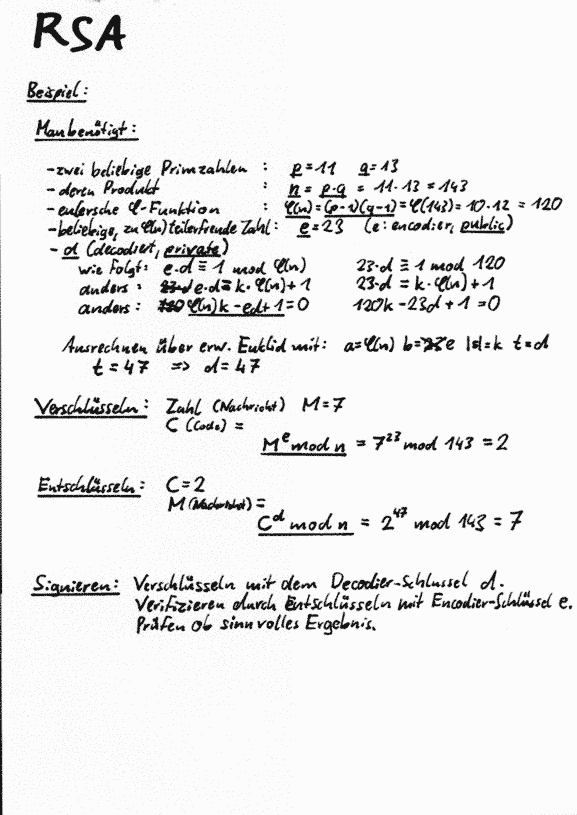 RSA
Beispiel:
Man benötigt:
- zwei beliebige Primzahlen : p = 11 q = 13
- deren Produkt : n = p·q = 11·13 = 143
- eulersche φ-Funktion : φ(n) = (p-1)(q-1) = φ(143) = 10·12 = 120
- beliebige, zu φ(n) teilerfremde Zahl: e = 23 (e: encodier, public)
- d (decodiert, private)
wie folgt: e·d ≡ 1 mod φ(n) 23·d ≡ 1 mod 120
anders : e·d = k·φ(n)+1 23·d = k·φ(n)+1
anders : φ(n)k - ed + 1 = 0 120k - 23d + 1 = 0
Ausrechnen über erw. Euklid mit: a = φ(n) b = e |s| = k t = d
t = 47 => d = 47
Verschlüsseln: Zahl (Nachricht) M = 7
C (Code) =
M^e mod n = 7^23 mod 143 = 2
Entschlüsseln: C = 2
M (Nachricht) =
C^d mod n = 2^47 mod 143 = 7
Signieren: Verschlüsseln mit dem Decodier-Schlussel d.
Verifizieren durch Entschlüsseln mit Encodier-Schlüssel e.
Prüfen ob sinnvolles Ergebnis.